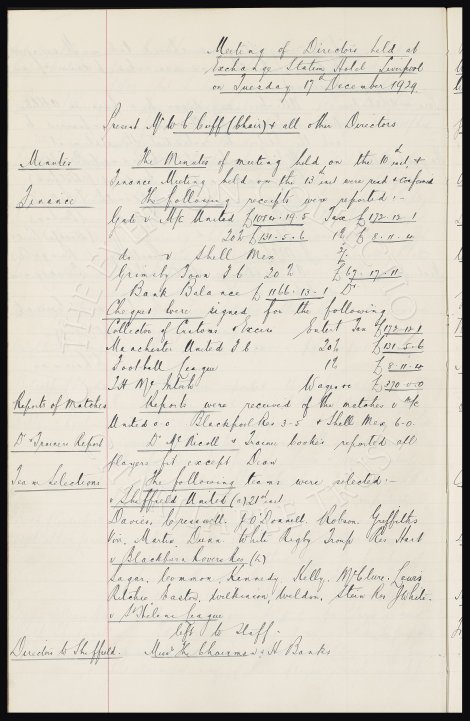 Meeting of Directors held at
Exchange Station Hotel Liverpool
on Tuesday 17th December 1929
Present Mr W C Cuff (Chair) & all other Directors
Minutes The Minutes of meeting held on the 10th inst, &
Finance Meeting held on the 13th inst were read & confirmed
Finance The following receipts were reported :-
Gate v M/c United £1084.19.5 Tax £172.12.1
20% £131.5.6 1% £8.11.4
do v Shell Mex
Grimsby Town F C 20% £67.17.11
Bank Balance £1166.13.1 Dr
Cheques were signed for the following
Collector of Customs & Excise Entert Tax £172.12.1
Manchester United F C 20% £131.5.6
Football League 1% £8.11.4
T H McIntosh Wages £370.0.0
Reports of Matches Reports were received of the matches v M/c
United 0.0 Blackpool Res 3-5 & Shell Mex, 6-0.
Dr & Trainers Report Dr McNicoll & Trainer Cooke's reported all
players fit except Dean
Team Selections The following teams were selected :-
v Sheffield United (a) 21st inst
Davies, Cresswell, J O'Donnell, Robson, Griffiths
Martin Dunn White Rigby Troup Res Hart
v Blackburn Rovers Res (h)
Sagar, Common, Kennedy, Kelly, McClure, Lewis
Ritchie Easton, Wilkinson, Weldon, Stein Res J White.
v St Helens League
left to Staff.
Directors to Sheffield. Messrs The Chairman & H Banks